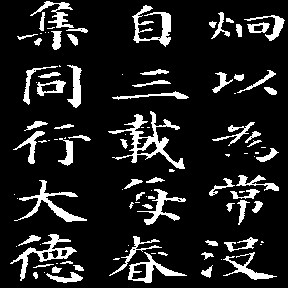 炯以為常沒
自三載每春
集同行大德